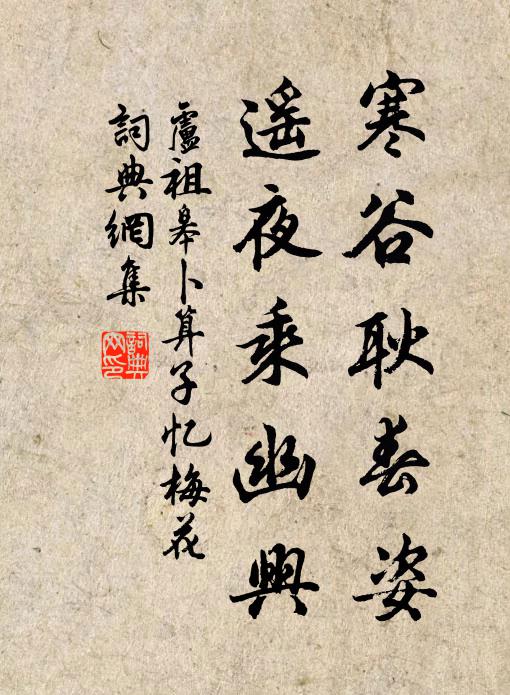 寒谷耿春姿
遥夜乘幽興
盧祖皋卜算子忆梅花
詞典網集
詞典网印